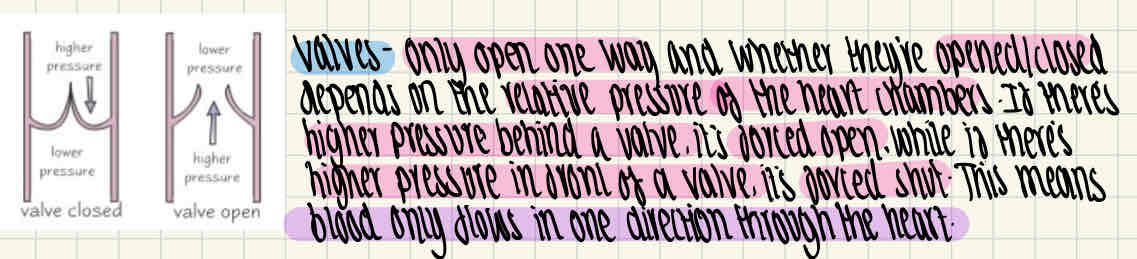 higher
pressure
lower
pressure
valve closed
lower
pressure
higher
pressure
valve open
valves- only open one way and whether they're opened/closed
depends on the relative pressure of the heart chambers. If there's
higher pressure behind a valve, it's forced open, while if there's
higher pressure in front of a valve, it's forced shut. This means
blood only flows in one direction through the heart.